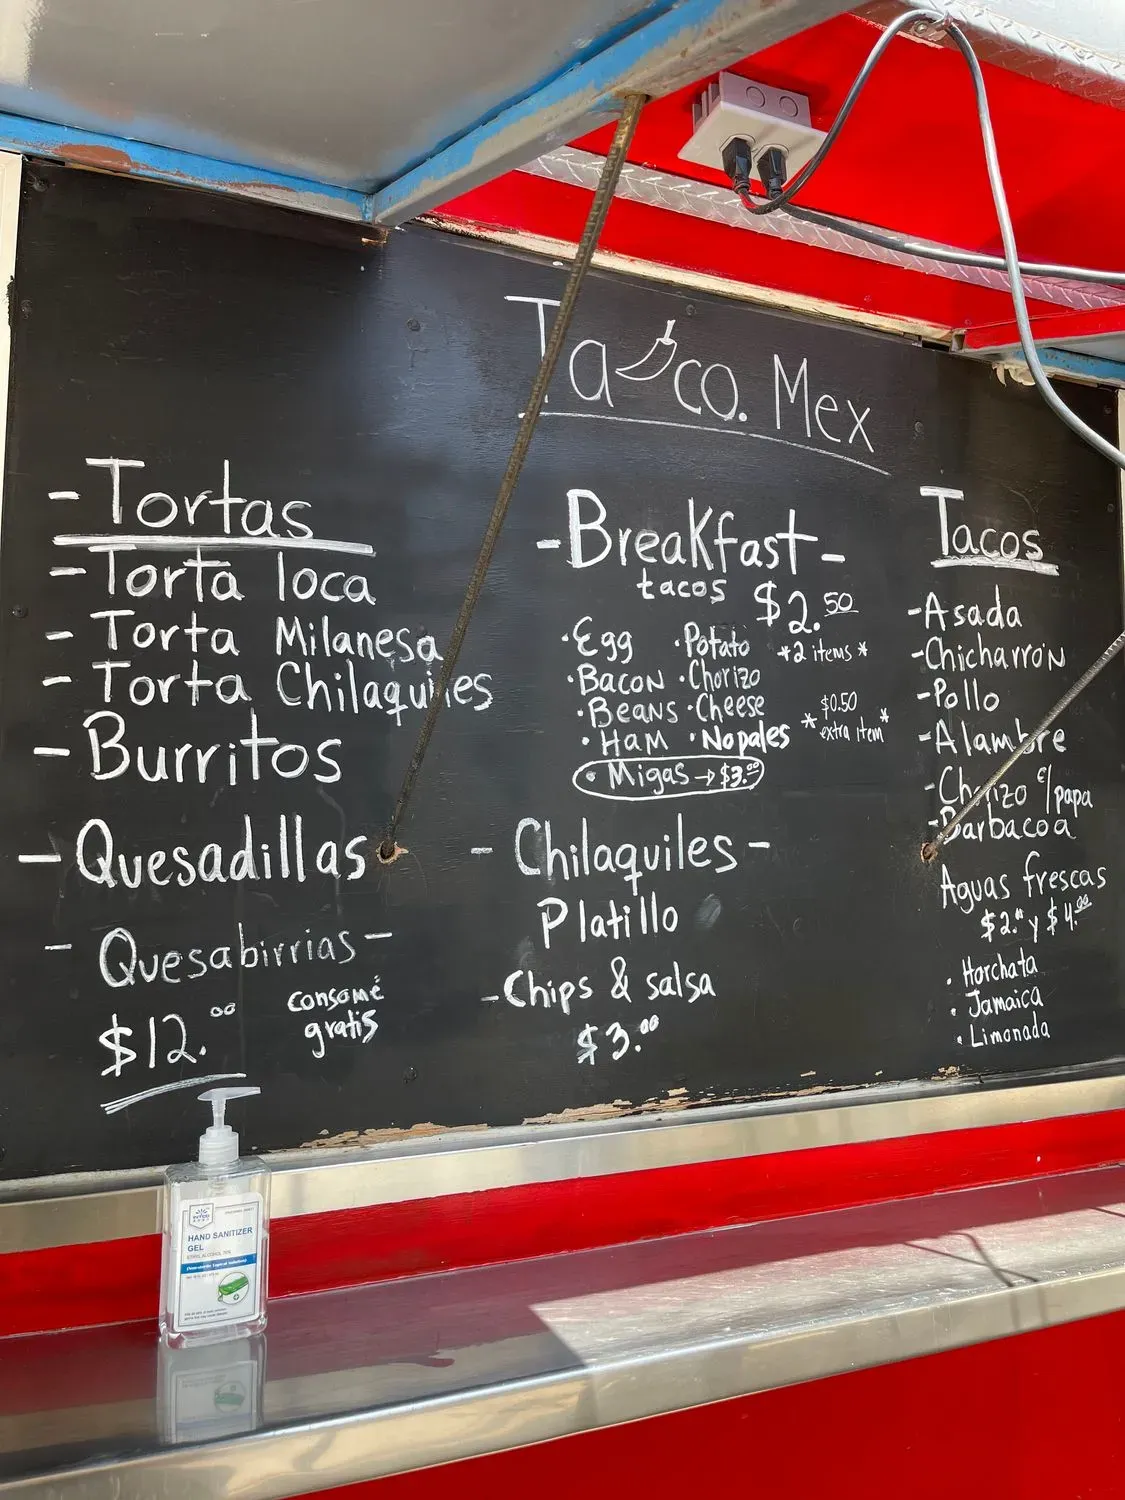 Taco. Mex
- Tortas
- Torta loca
- Torta Milanesa
- Torta Chilaquiles
- Burritos
- Quesadillas
- Quesabirrias -
$12.00
consomé
gratis
- Breakfast -
tacos
$2.50
*2 items*
· Egg
· Potato
· Bacon
· Chorizo
· Beans
· Cheese
· Ham
· Nopales
$0.50
*extra item*
· Migas → $3.00
- Chilaquiles -
Platillo
- Chips & salsa
$3.00
Tacos
- Asada
- Chicharrón
- Pollo
- Alambre
- Chorizo c/papa
- Barbacoa
Aguas frescas
$2.00 y $4.00
· Horchata
· Jamaica
· Limonada
HAND SANITIZER
GEL
ETHYL ALCOHOL 70%